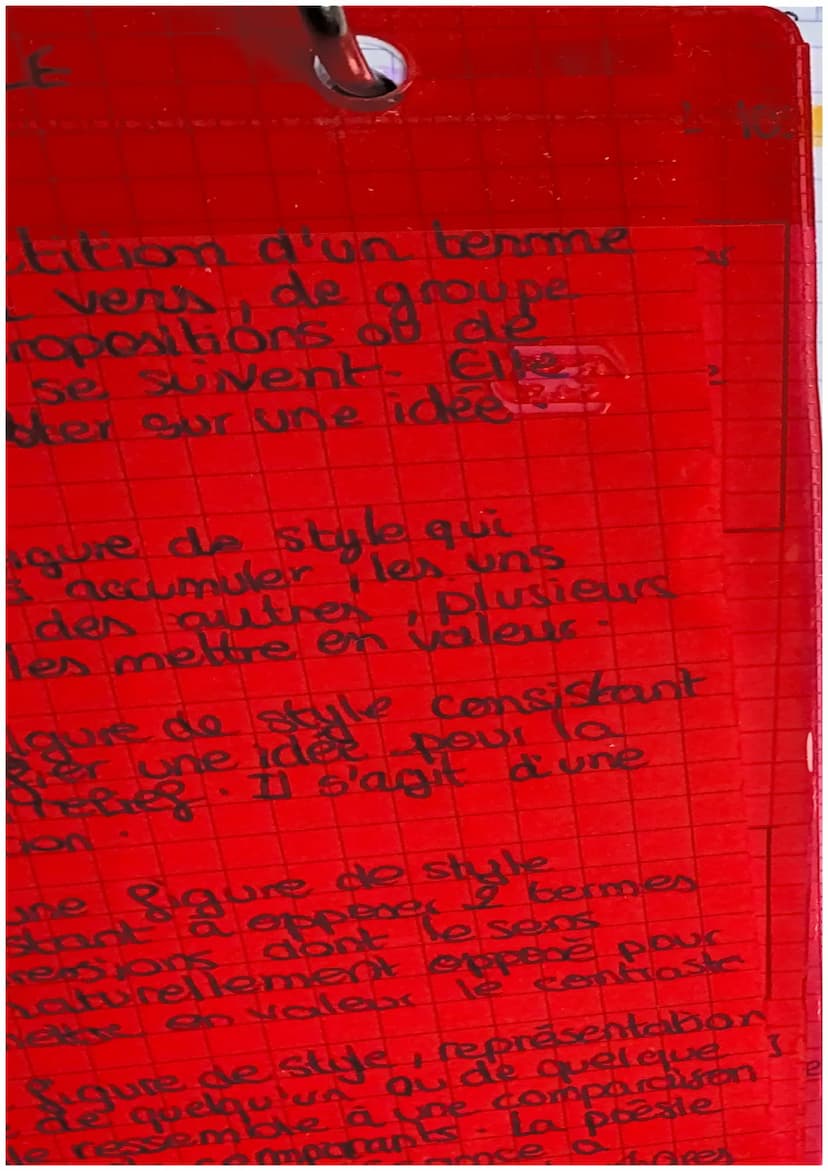 LE
tition d'un terme
vers, de groupe
ropositions ou de
se suivent. Elle
ster sur une idée.
igure de style qui
accumuler, les uns
des autres, plusieurs
les mettre en valeur.
igure de style consistant
une idée pour la
relief. Il s'agit d'une
ion.
une figure de style
stant à opposer 2 termes
ressions dont le sens
naturellement opposé pour
mettre en valeur le contraste
figure de style, représentation
de quelqu'un ou de quelque
le ressemble à une comparaison
comparants. La poésie
a